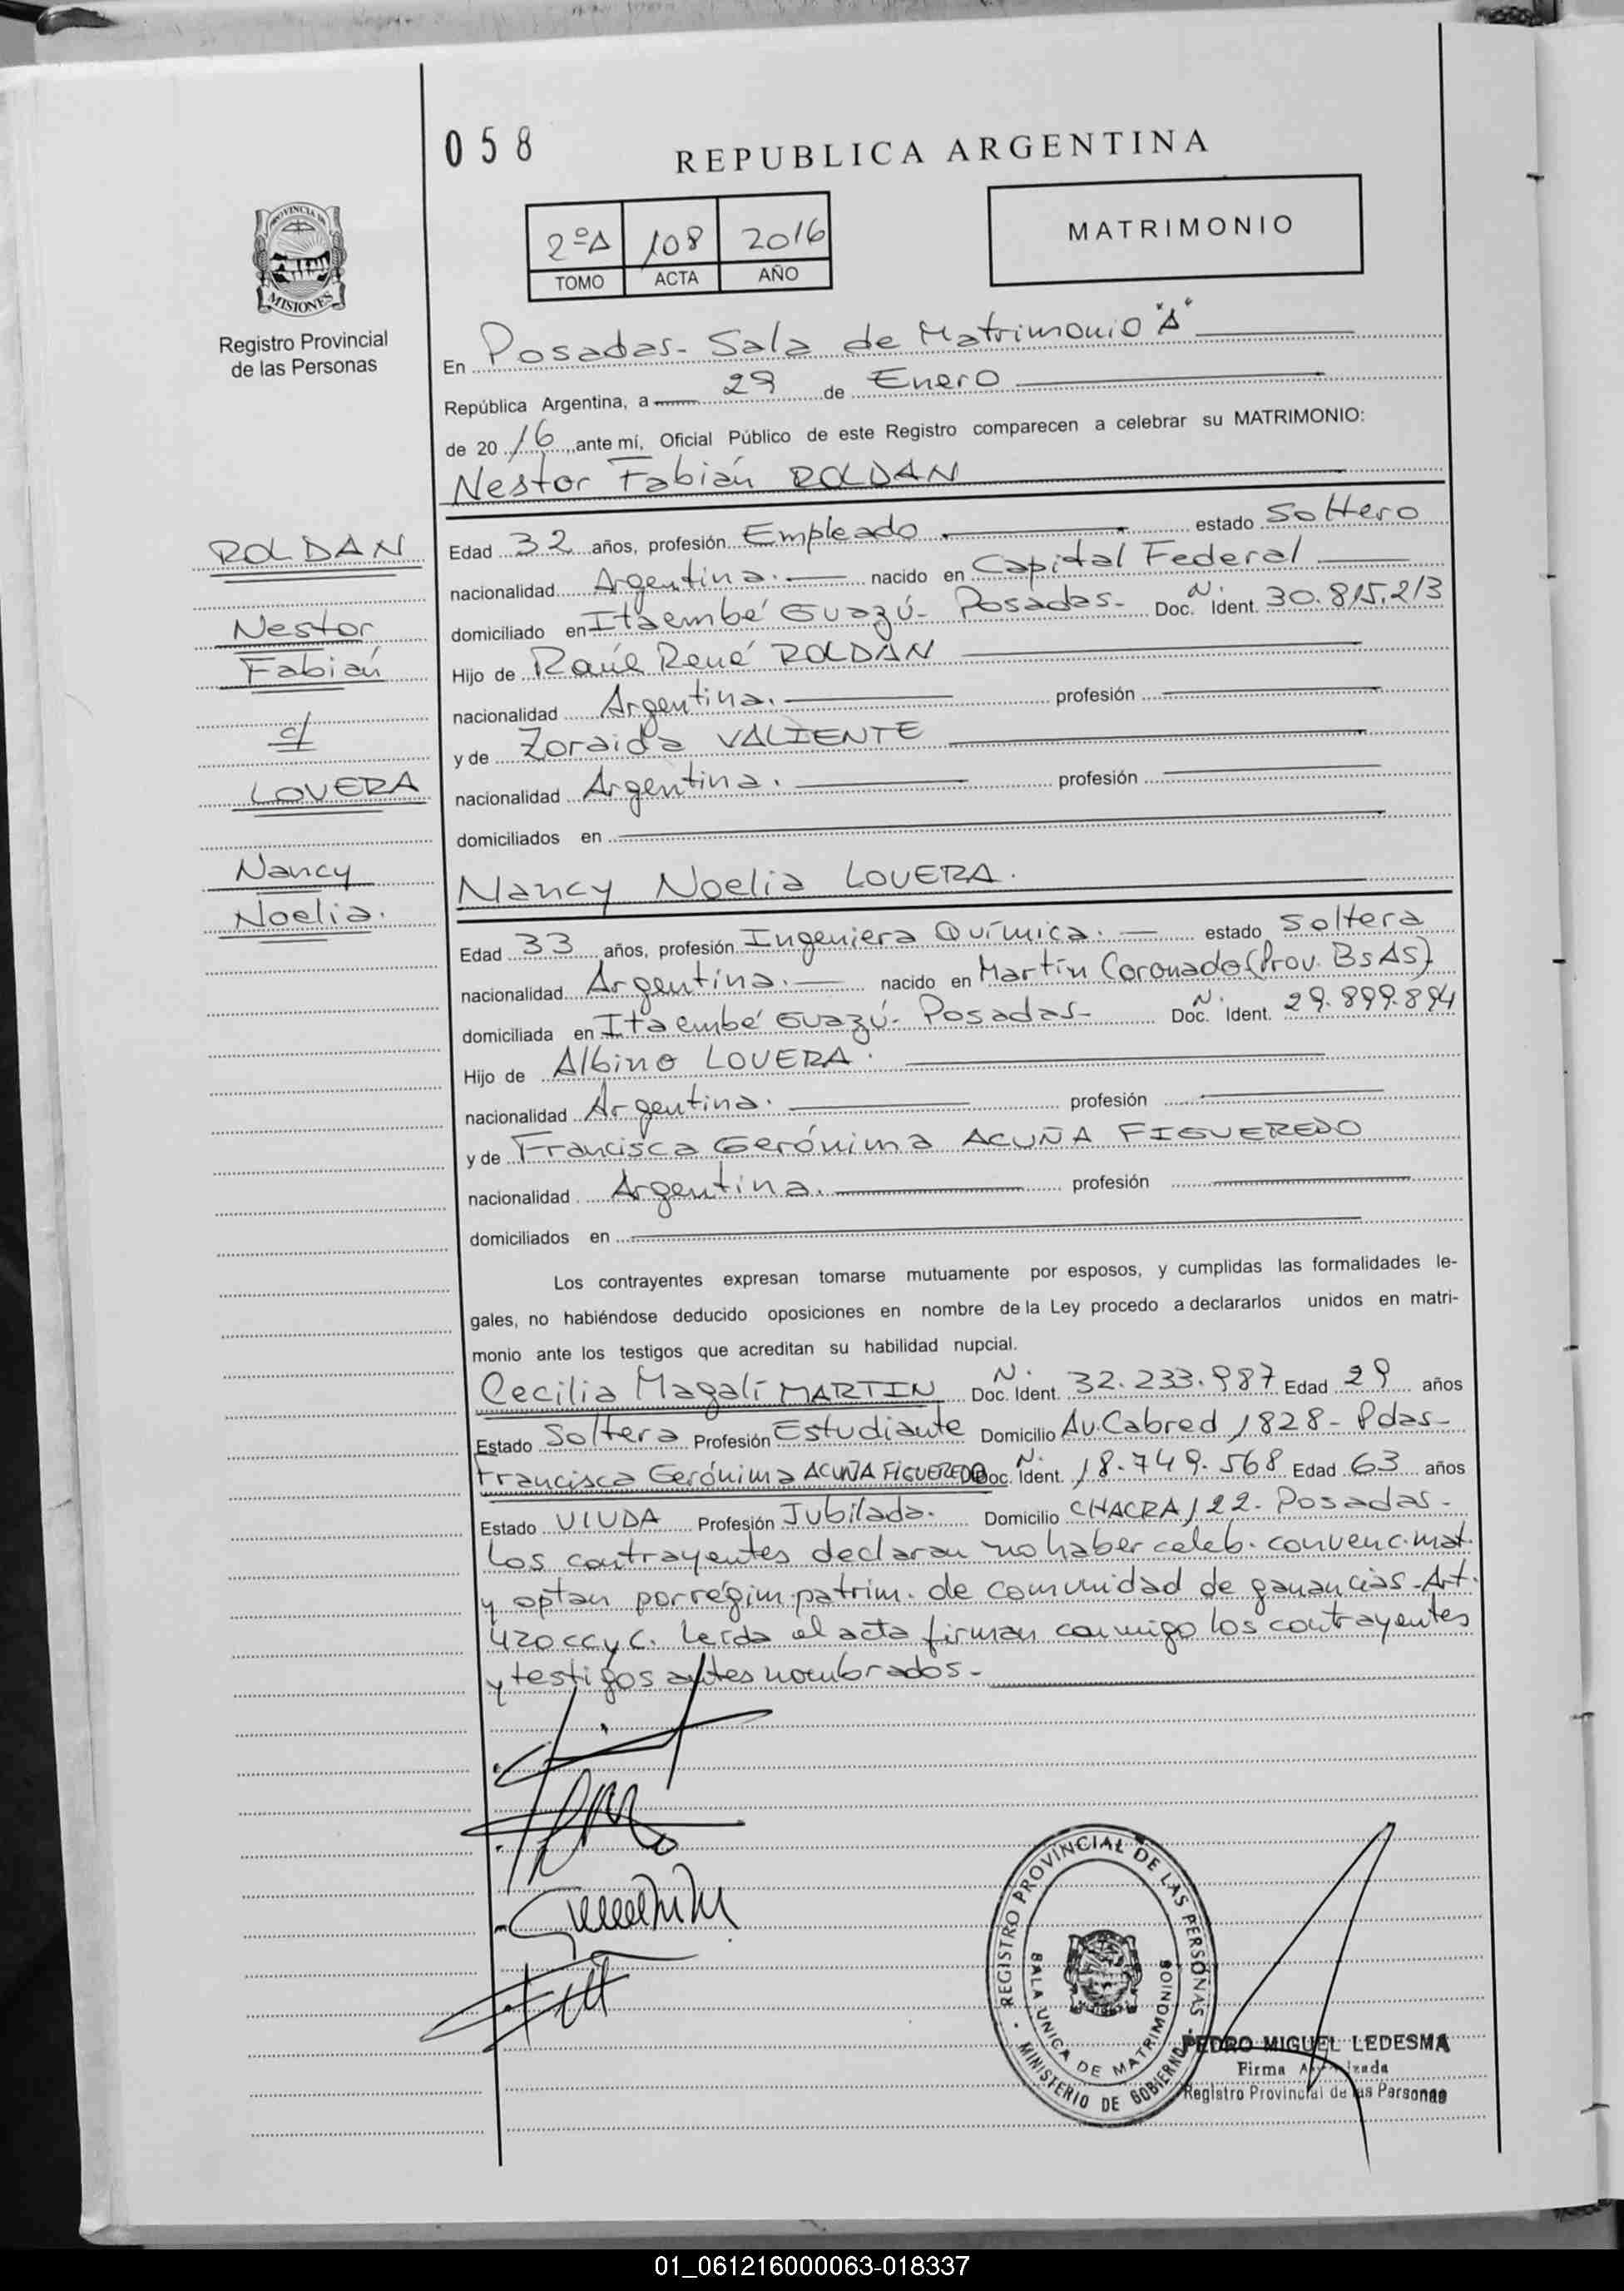 058
REPUBLICA ARGENTINA
2ºA 108 2016
TOMO ACTA AÑO
MATRIMONIO
PROVINCIA DE
MISIONES
Registro Provincial
de las Personas
En Posadas- Sala de Matrimonio "A"
República Argentina, a 29 de Enero
de 2016, ante mí, Oficial Público de este Registro comparecen a celebrar su MATRIMONIO:
Nestor Fabián ROLDAN
ROLDAN
Nestor
Fabián
c/
LOVERA
Nancy
Noelia.
Edad 32 años, profesión Empleado estado Soltero
nacionalidad Argentina. nacido en Capital Federal
domiciliado en Itaembé Guazú- Posadas- Doc. N. Ident. 30.815.213
Hijo de Raúl René ROLDAN
nacionalidad Argentina. profesión
y de Zoraida VALIENTE
nacionalidad Argentina. profesión
domiciliados en
Nancy Noelia LOVERA.
Edad 33 años, profesión Ingeniera Química. estado Soltera
nacionalidad Argentina. nacido en Martín Coronado (Prov. BsAs)
domiciliada en Itaembé Guazú- Posadas- Doc. N. Ident. 29.899.894
Hijo de Albino LOVERA.
nacionalidad Argentina. profesión
y de Francisca Gerónima ACUÑA FIGUEREDO
nacionalidad Argentina. profesión
domiciliados en
Los contrayentes expresan tomarse mutuamente por esposos, y cumplidas las formalidades le-
gales, no habiéndose deducido oposiciones en nombre de la Ley procedo a declararlos unidos en matri-
monio ante los testigos que acreditan su habilidad nupcial.
Cecilia Magalí MARTIN Doc. N. Ident. 32.233.987 Edad 29 años
Estado Soltera Profesión Estudiante Domicilio Av. Cabred 1828- Pdas-
Francisca Gerónima ACUÑA FIGUEREDO Doc. N. Ident. 18.749.568 Edad 63 años
Estado VIUDA Profesión Jubilada. Domicilio CHACRA 122- Posadas-
Los contrayentes declaran no haber celeb. convenc. mat.
y optan por régim. patrim. de comunidad de ganancias- Art.
420 CCyC. Leída el acta firman conmigo los contrayentes
y testigos antes nombrados-
REGISTRO PROVINCIAL DE LAS PERSONAS
SALA UNICA DE MATRIMONIOS
MINISTERIO DE GOBIERNO
PEDRO MIGUEL LEDESMA
Firma
Registro Provincial de las Personas
01_061216000063-018337